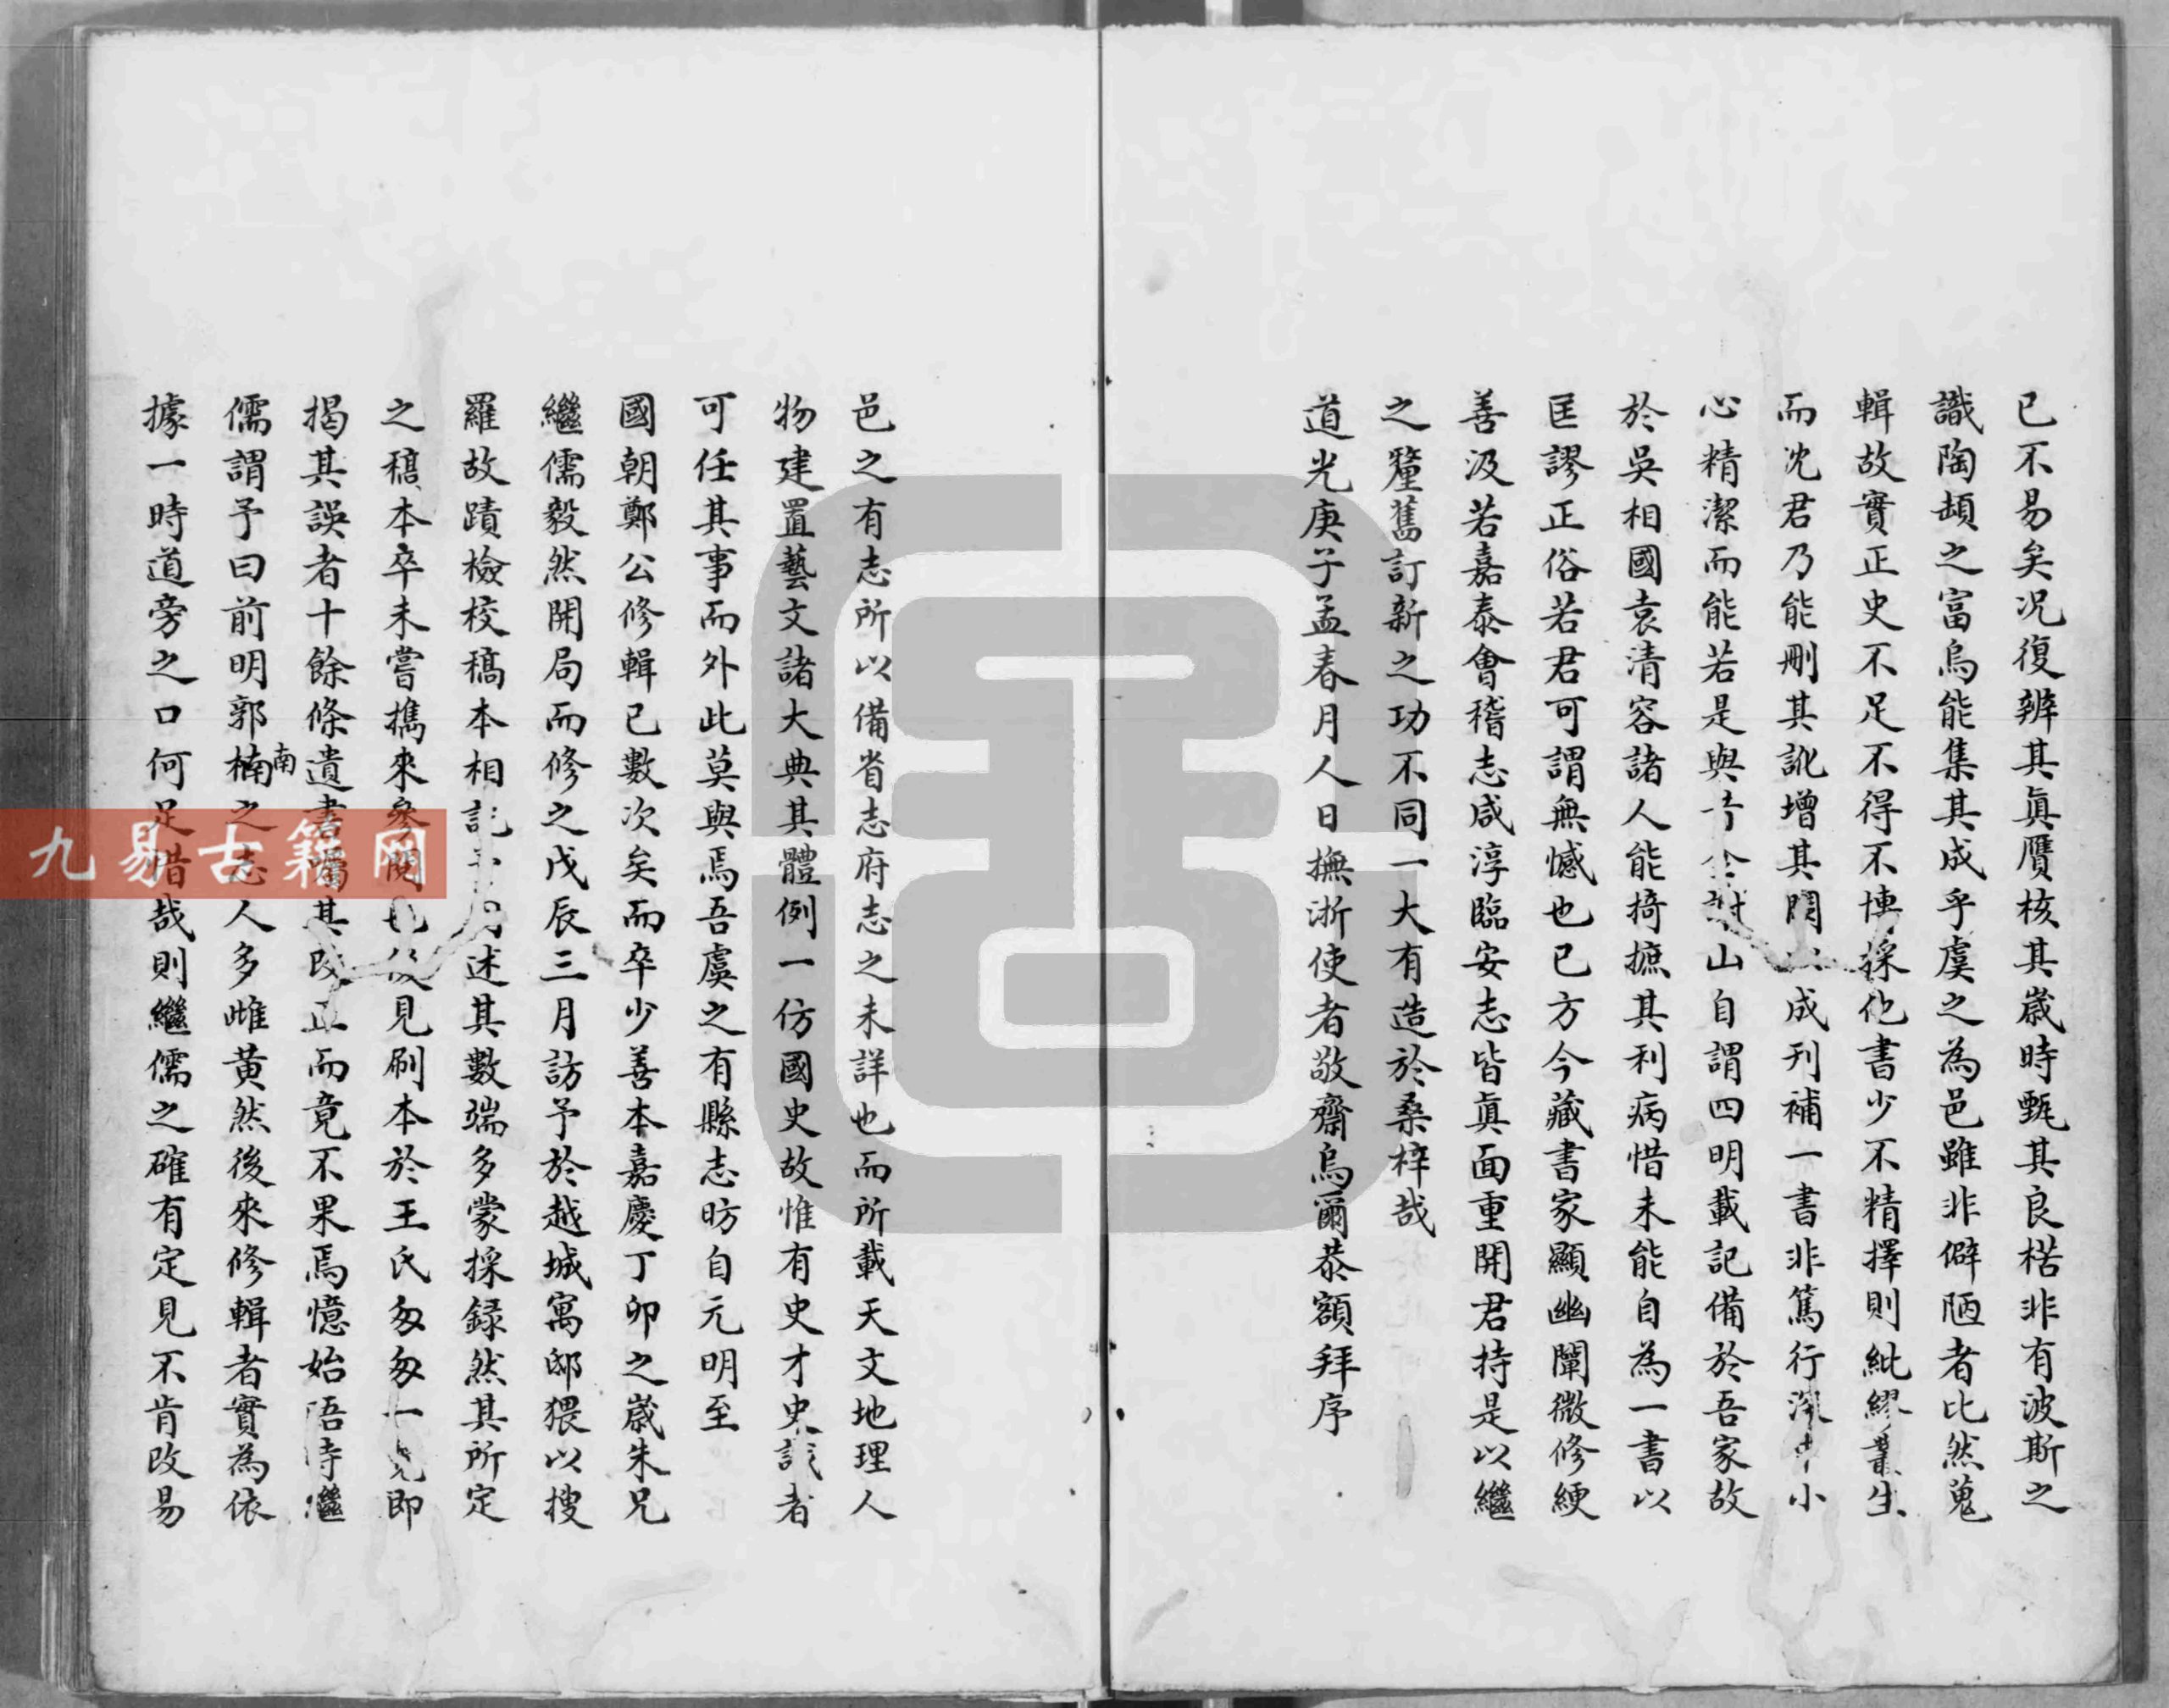 已不易矣况復辨其眞贋核其歳時甄其良楛非有波斯之
識陶頡之富烏能集其成乎虞之為邑雖非僻陋者比然蒐
輯故實正史不足不得不博採他書少不精擇則紕繆叢生
而沈君乃能刪其訛增其闕以成刋補一書非篤行深中小
心精潔而能若是與 山自謂四明載記備於吾家故
於吳相國袁清容諸人能掎摭其利病惜未能自為一書以
匡謬正俗若君可謂無憾也已方今藏書家顯幽闡微修綆
善汲若嘉泰會稽志咸淳臨安志皆眞面重開君持是以繼
之釐舊訂新之功不同一大有造於桑梓哉
道光庚子孟春月人日撫浙使者敬齋烏爾恭額拜序
邑之有志所以備省志府志之未詳也而所載天文地理人
物建置藝文諸大典其體例一仿國史故惟有史才史識者
可任其事而外此莫與焉吾虞之有縣志昉自元明至
國朝鄭公修輯已數次矣而卒少善本嘉慶丁卯之歳朱兄
繼儒毅然開局而修之戊辰三月訪予於越城寓邸猥以搜
羅故蹟檢校稿本相託 述其數端多蒙採録然其所定
之稿本卒未嘗攜來參閱 見刷本於王氏匆匆一 即
揭其誤者十餘條遺書囑其改正而竟不果焉憶始晤時繼
儒謂予曰前明郭楠南之志人多雌黄然後來修輯者實為依
據一時道旁之口何足惜哉則繼儒之確有定見不肯改易
九易古籍网